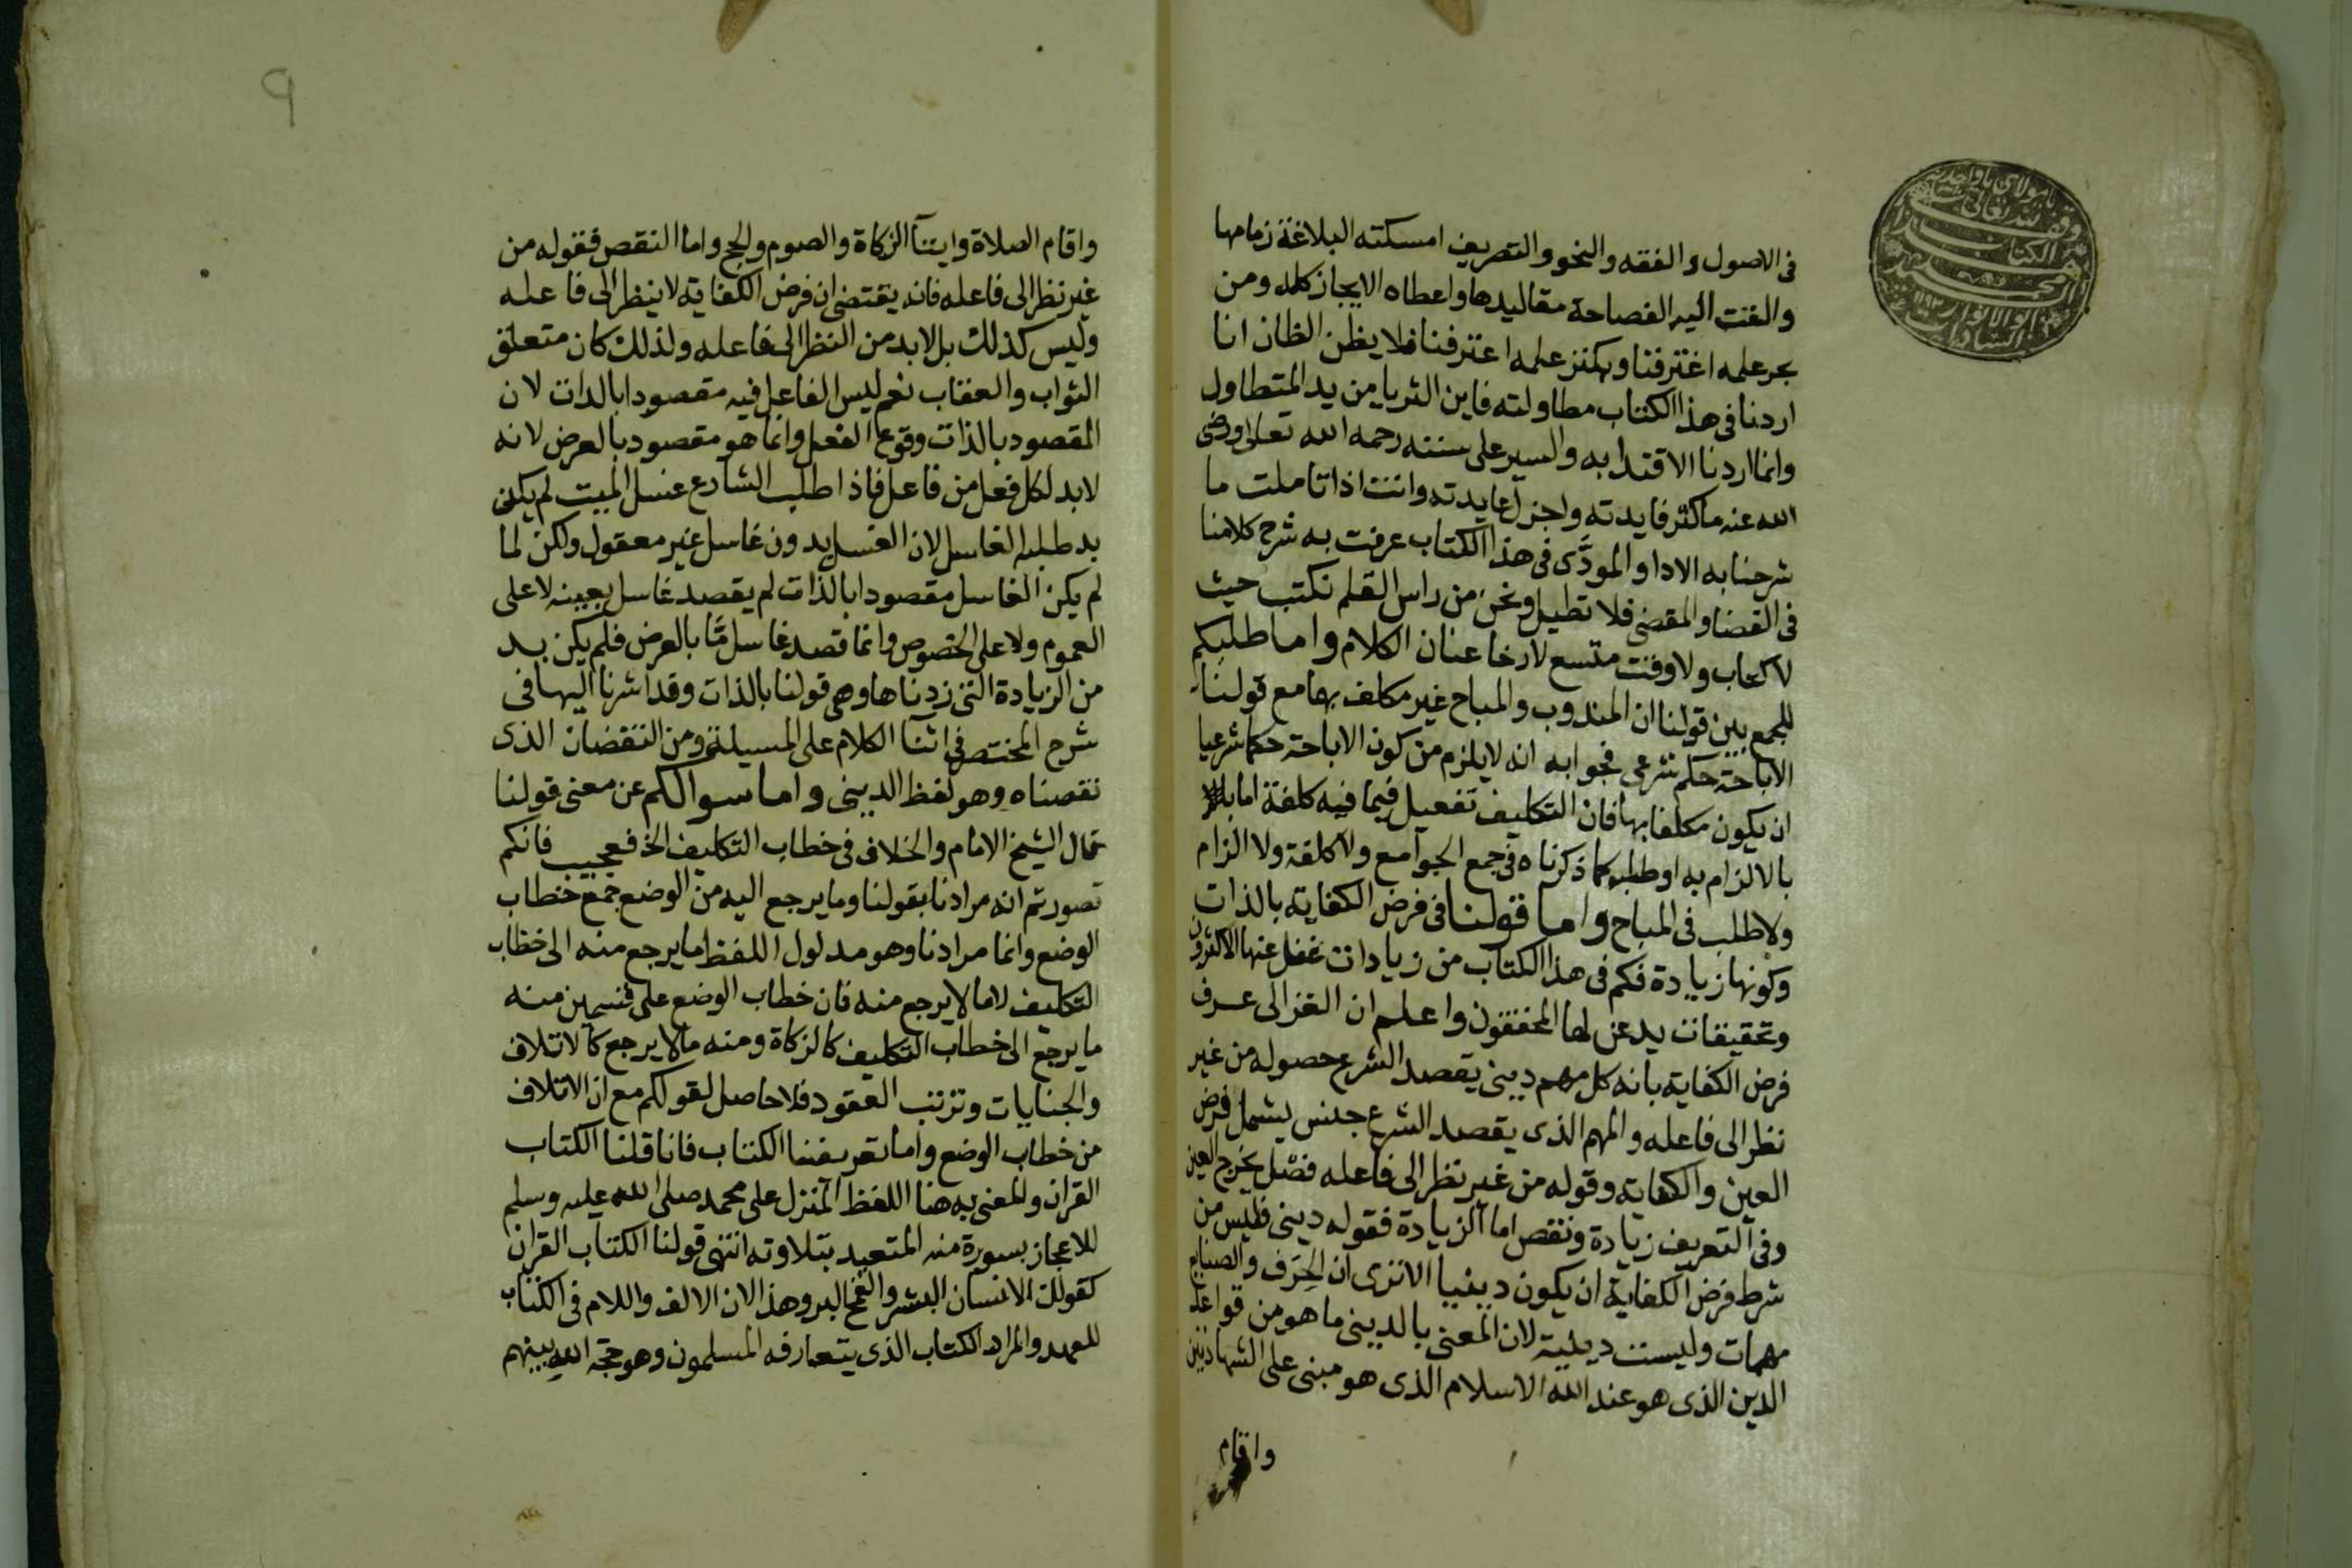 في الاصول والفقه والنحو والتصريف امسكته البلاغة زمامها
والقت اليه الفصاحة مقاليدها واعطاه الايجاز كله ومن
بحر علمه اغترفنا وبكنز علمه اعترفنا فلا يظن الظان انا
اردنا في هذا الكتاب مطاولته فاين الثريا من يد المتطاول
وانما اردنا الاقتدا به والسير على سننه رحمه الله تعالى ورضى
الله عنه ما كثر فايدته واجزل عايدته وانت اذا تاملت ما
شرحنا به الادا والمودَّى في هذا الكتاب عرفت به شرح كلامنا
في القضا والمقضى فلا تطيل ونحن من راس القلم نكتب حيث
لا كتاب ولا وقت متسع لارخا عنان الكلام واما طلبكم
للجمع بين قولنا ان المندوب والمباح غير مكلف بها مع قولنا
الاباحة حكم شرعى فجوابه انه لا يلزم من كون الاباحة حكما شرعيا
ان يكون مكلفا بها فان التكليف تفعيل فيما فيه كلفة اما
بالالزام به او طلبه كما ذكرناه في جمع الجوامع ولا كلفة ولا الزام
ولا طلب في المباح واما قولنا في فرض الكفاية بالذات
وكونها زيادة فكم في هذا الكتاب من زيادات غفل عنها الاكثرون
وتحقيقات يدعن لها المحققون واعلم ان الغزالى عرف
فرض الكفاية بانه كل مهم دينى يقصد الشرع حصوله من غير
نظر الى فاعله والمهم الذى يقصد الشرع جنس يشمل فرض
العين والكفاية وقوله من غير نظر الى فاعله فصل يخرج العين
وفي التعريف زيادة ونقص اما الزيادة فقوله دينى فليس من
شرط فرض الكفاية ان يكون دينيا الا ترى ان الحِرَف والصنايع
مهمات وليست دينية لان المعنى بالدينى ما هو من قواعد
الدين الذى هو عند الله الاسلام الذى هو مبنى على الشهادتين
واقام
٩
واقام الصلاة وايتآ الزكاة والصوم والحج واما النقص فقوله من
غير نظر الى فاعله فانه يقتضى ان فرض الكفاية لا ينظر الى فاعله
وليس كذلك بل لابد من النظر الى فاعله ولذلك كان متعلق
الثواب والعقاب نعم ليس الفاعل فيه مقصودا بالذات لان
المقصود بالذات وقوع الفعل وانما هو مقصود بالعرض لانه
لابد لكل فعل من فاعل فاذا طلب الشارع غسل الميت لم يكن
بد طلبه الغاسل لان الغسل بدون غاسل غير معقول ولكن لما
لم يكن الغاسل مقصودا بالذات لم يقصد غاسل بعينه لا على
العموم ولا على الخصوص وانما قصد غاسل مَّا بالعرض فلم يكن بد
من الزيادة التى زدناها وهى قولنا بالذات وقد اشرنا اليها في
شرح المختصر في اثنآ الكلام على المسيلة ومن النقصان الذى
نقصناه وهو لفظ الدينى واما سوالكم عن معنى قولنا
قال الشيخ الامام والخلاف في خطاب التكليف الخ فعجيب فانكم
تصورتم انه مرادنا بقولنا وما يرجع اليه من الوضع جمع خطاب
الوضع وانما مرادنا وهو مدلول اللفظ اما يرجع منه الى خطاب
التكليف لا ما لا يرجع منه فان خطاب الوضع على قسمين منه
ما يرجع الى خطاب التكليف كالزكاة ومنه ما لا يرجع كالاتلاف
والجنايات وترتب العقود فلا حاصل لقولكم مع ان الاتلاف
من خطاب الوضع واما تعريفنا الكتاب فانا قلنا الكتاب
القران والمعنى به هنا اللفظ المنزل على محمد صلى الله عليه وسلم
للاعجاز بسورة منه المتعبد بتلاوته انتهى قولنا الكتاب القران
كقولك الانسان البشر والقمح البر وهذا لان الالف واللام في الكتاب
للعهد والمراد الكتاب الذى يتعارفه المسلمون وهو حجة الله بينهم